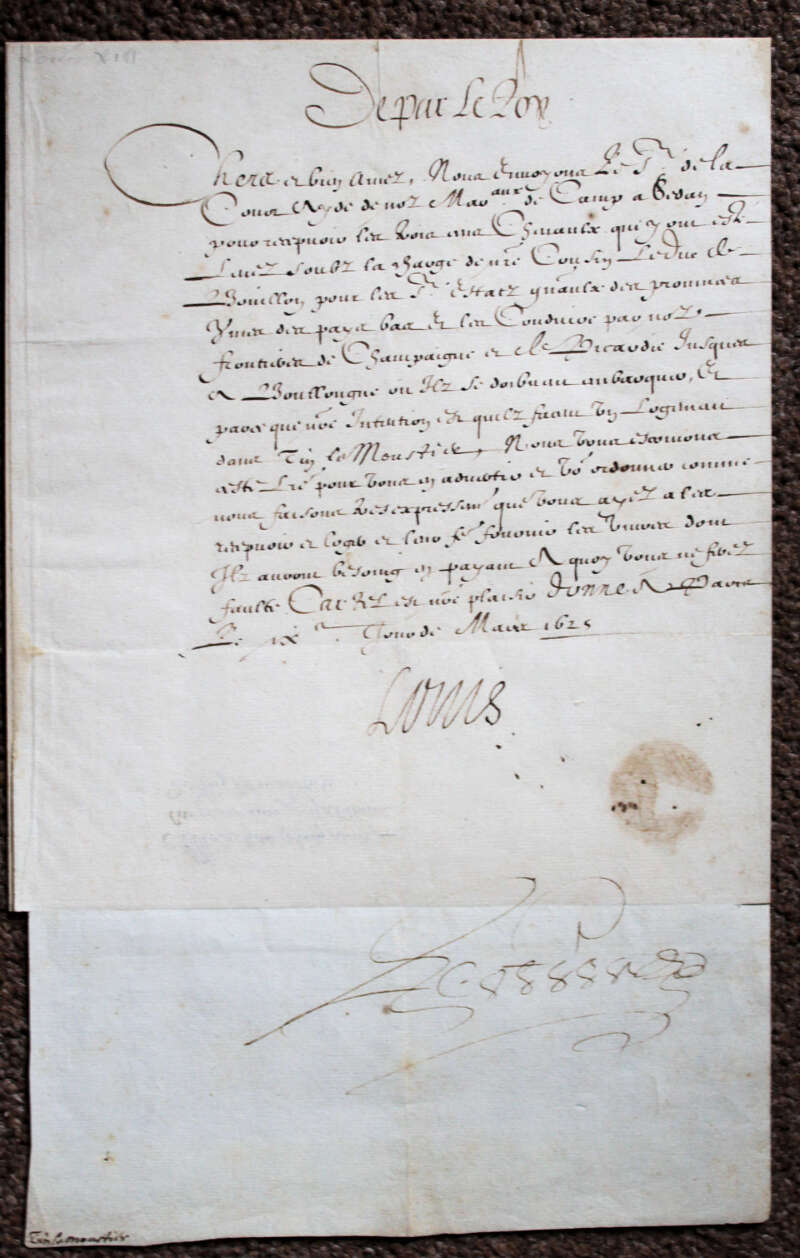 Louis XIII
De par Le Roy
Chers et bien amez, Nous Envoyons Le Sr de la
Cour Ayde de noz Mar.aux de Camp a Sedan
pour recepvoir les trois cens Chevaulx quy ont esté
Levez soubz la charge de nre Cousin Le duc de
Bouillon pour les Srs Estatz gnaulx des provinces
Unies des pays bas Et les Conduire par noz
frontieres de Champaigne et de Picardie Jusques
A Boullongne ou Ilz se doibvent embarquer, Et
parce que nre Intention est quilz facent un Logement
dans Tin le Moustier, Nous vous escrivons
ceste Lre pour vous en advertir et vo' ordonner comme
nous faisons tres expressemt que vous ayez a les
recepvoir et loger et leur fe fournir les vivres dont
Ilz auront besoing en payant A quoy vous ne ferez
faulte Car tel est nre plaisir donné A Paris
Le ixe Jour de Mars 1625
Louis
Tin le moustier